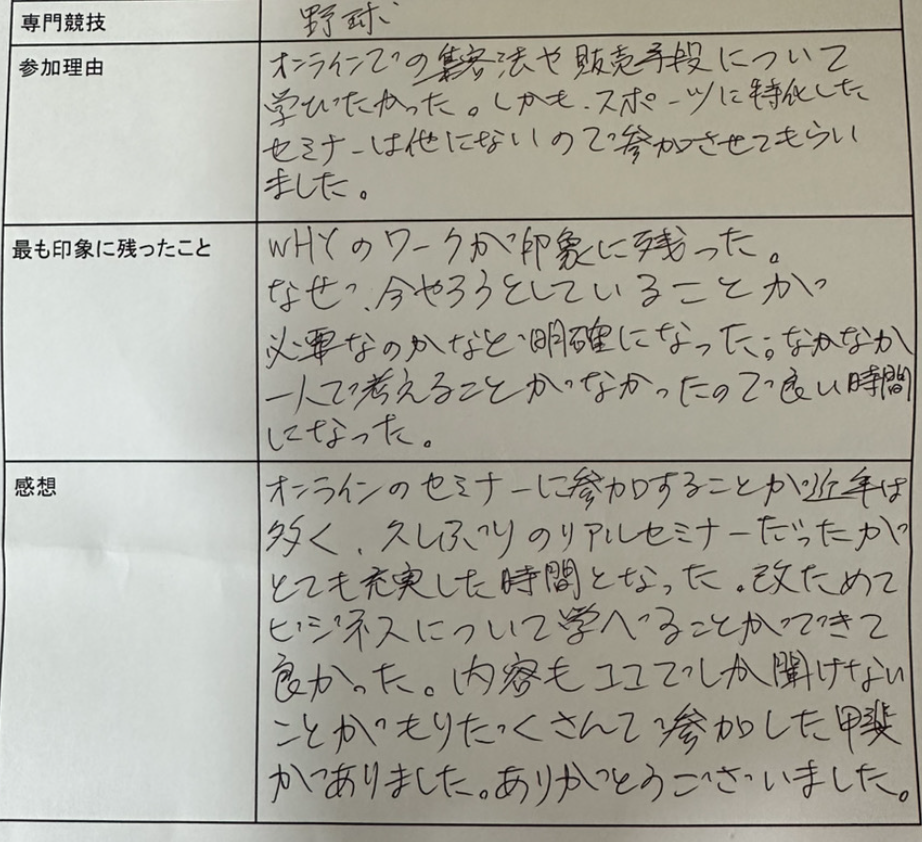 専門競技
野球
参加理由
オンラインでの集客法や販売手段について
学びたかった。しかも、スポーツに特化した
セミナーは他にないので参加させてもらい
ました。
最も印象に残ったこと
WHYのワークが印象に残った。
なぜ、今やろうとしていることが
必要なのかなど明確になった。なかなか
一人で考えることがなかったので良い時間
になった。
感想
オンラインのセミナーに参加することが近年は
多く、久しぶりのリアルセミナーだったが
とても充実した時間となった。改ためて
ビジネスについて学べることができて
良かった。内容もココでしか聞けない
ことがもりたくさんで参加した甲斐
がありました。ありがとうございました。